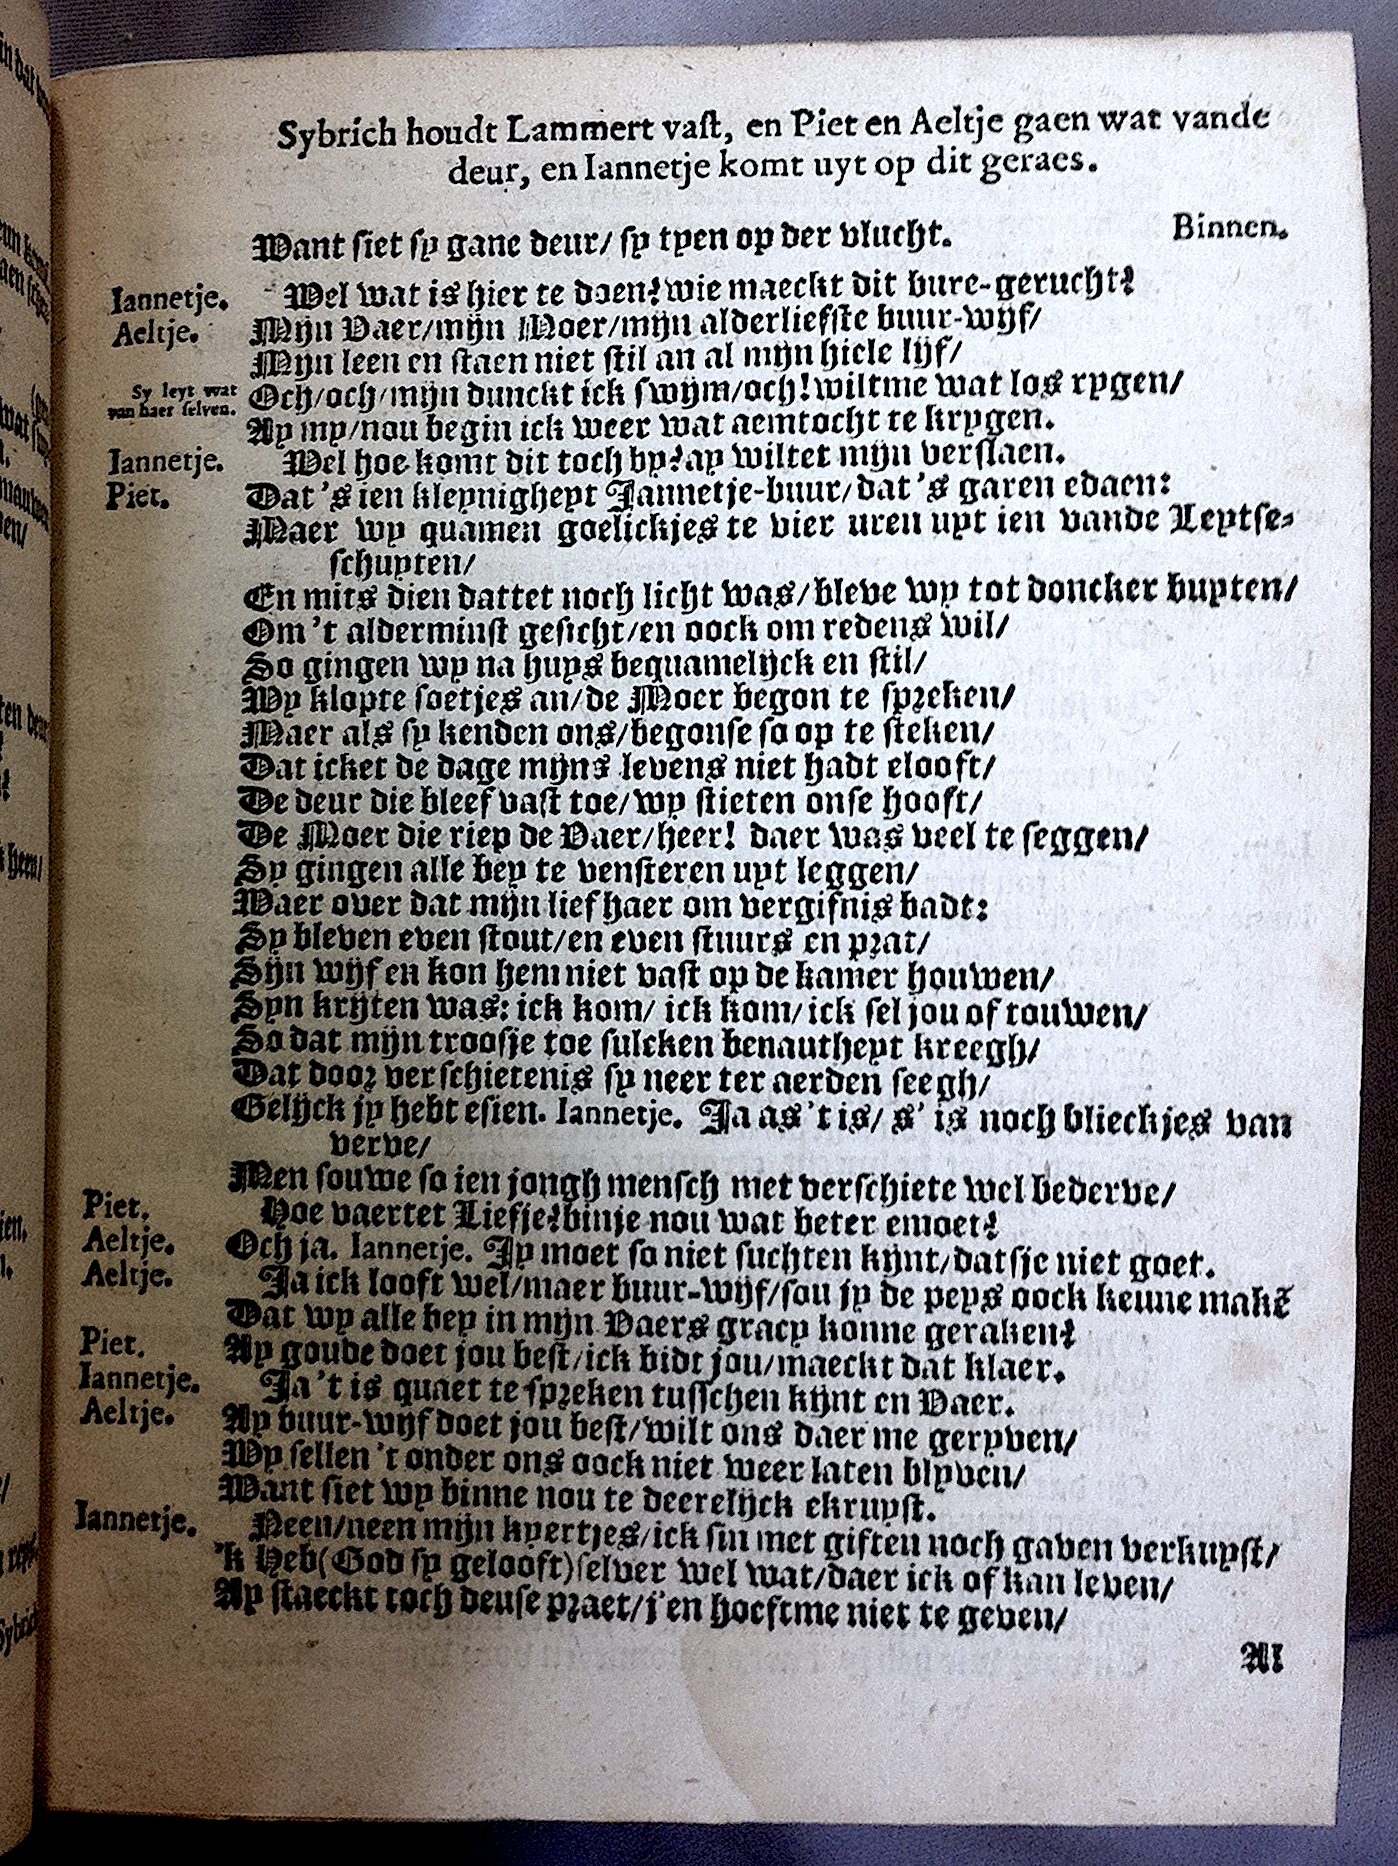 Sybrich houdt Lammert vast, en Piet en Aeltje gaen wat vande
deur, en Iannetje komt uyt op dit geraes.
Want siet sy gane deur/ sy tyen op der vlucht. Binnen.
Iannetje. Wel wat is hier te doen? wie maeckt dit bure-gerucht?
Aeltje. Mijn Vaer/mijn Moer/mijn alderliefste buur-wijf/
Mijn leen en staen niet stil an al mijn hiele lijf/
Sy leyt wat van haer selven. Och/och/mijn dunckt ick swijm/och! wiltme wat los rygen/
Ay my/nou begin ick weer wat aemtocht te krygen.
Iannetje. Wel hoe komt dit toch by? ay wiltet mijn verslaen.
Piet. Dat 's ien kleynigheyt Jannetje-buur/dat 's garen edaen:
Maer wy quamen goelickjes te vier uren uyt ien vande Leytse-
schuyten/
En mits dien dattet noch licht was/bleve wy tot doncker buyten/
Om 't alderminst gesicht/en oock om redens wil/
So gingen wy na huys bequamelijck en stil/
Wy klopte soetjes an/de Moer begon te spreken/
Maer als sy kenden ons/begonse so op te steken/
Dat icket de dage mijns levens niet hadt elooft/
De deur die bleef vast toe/wy stieten onse hooft/
De Moer die riep de Vaer/heer! daer was veel te seggen/
Sy gingen alle bey te vensteren uyt leggen/
Waer over dat mijn lief haer om vergifnis badt:
Sy bleven even stout/en even stuurs en prat/
Sijn wijf en kon hem niet vast op de kamer houwen/
Syn krijten was: ick kom/ ick kom/ ick sel jou of touwen/
So dat mijn troosje toe sulcken benautheyt kreegh/
Dat door verschietenis sy neer ter aerden seegh/
Gelijck jy hebt esien. Iannetje. Ja as 't is/ s' is noch blieckjes van
verve/
Men souwe so ien jongh mensch met verschiete wel bederve/
Piet. Hoe vaertet Liefje? binje nou wat beter emoet?
Aeltje. Och ja. Iannetje. Jy moet so niet suchten kijnt/datsje niet goet.
Aeltje. Ja ick looft wel/maer buur-wijf/sou jy de peys oock kenne makẽ
Dat wy alle bey in mijn Vaers gracy konne geraken?
Piet. Ay goude doet jou best/ick bidt jou/maeckt dat klaer.
Iannetje. Ja 't is quaet te spreken tusschen kijnt en Vaer.
Aeltje. Ay buur-wijf doet jou best/wilt ons daer me geryven/
Wy sellen 't onder ons oock niet weer laten blyven/
Want siet wy binne nou te deerelijck ekruyst.
Iannetje. Neen/neen mijn kyertjes/ick sin met giften noch gaven verkuyst/
'k Heb (God sy gelooft) selver wel wat/daer ick of kan leven/
Ay staeckt toch deuse praet/j'en hoeftme niet te geven/
Al